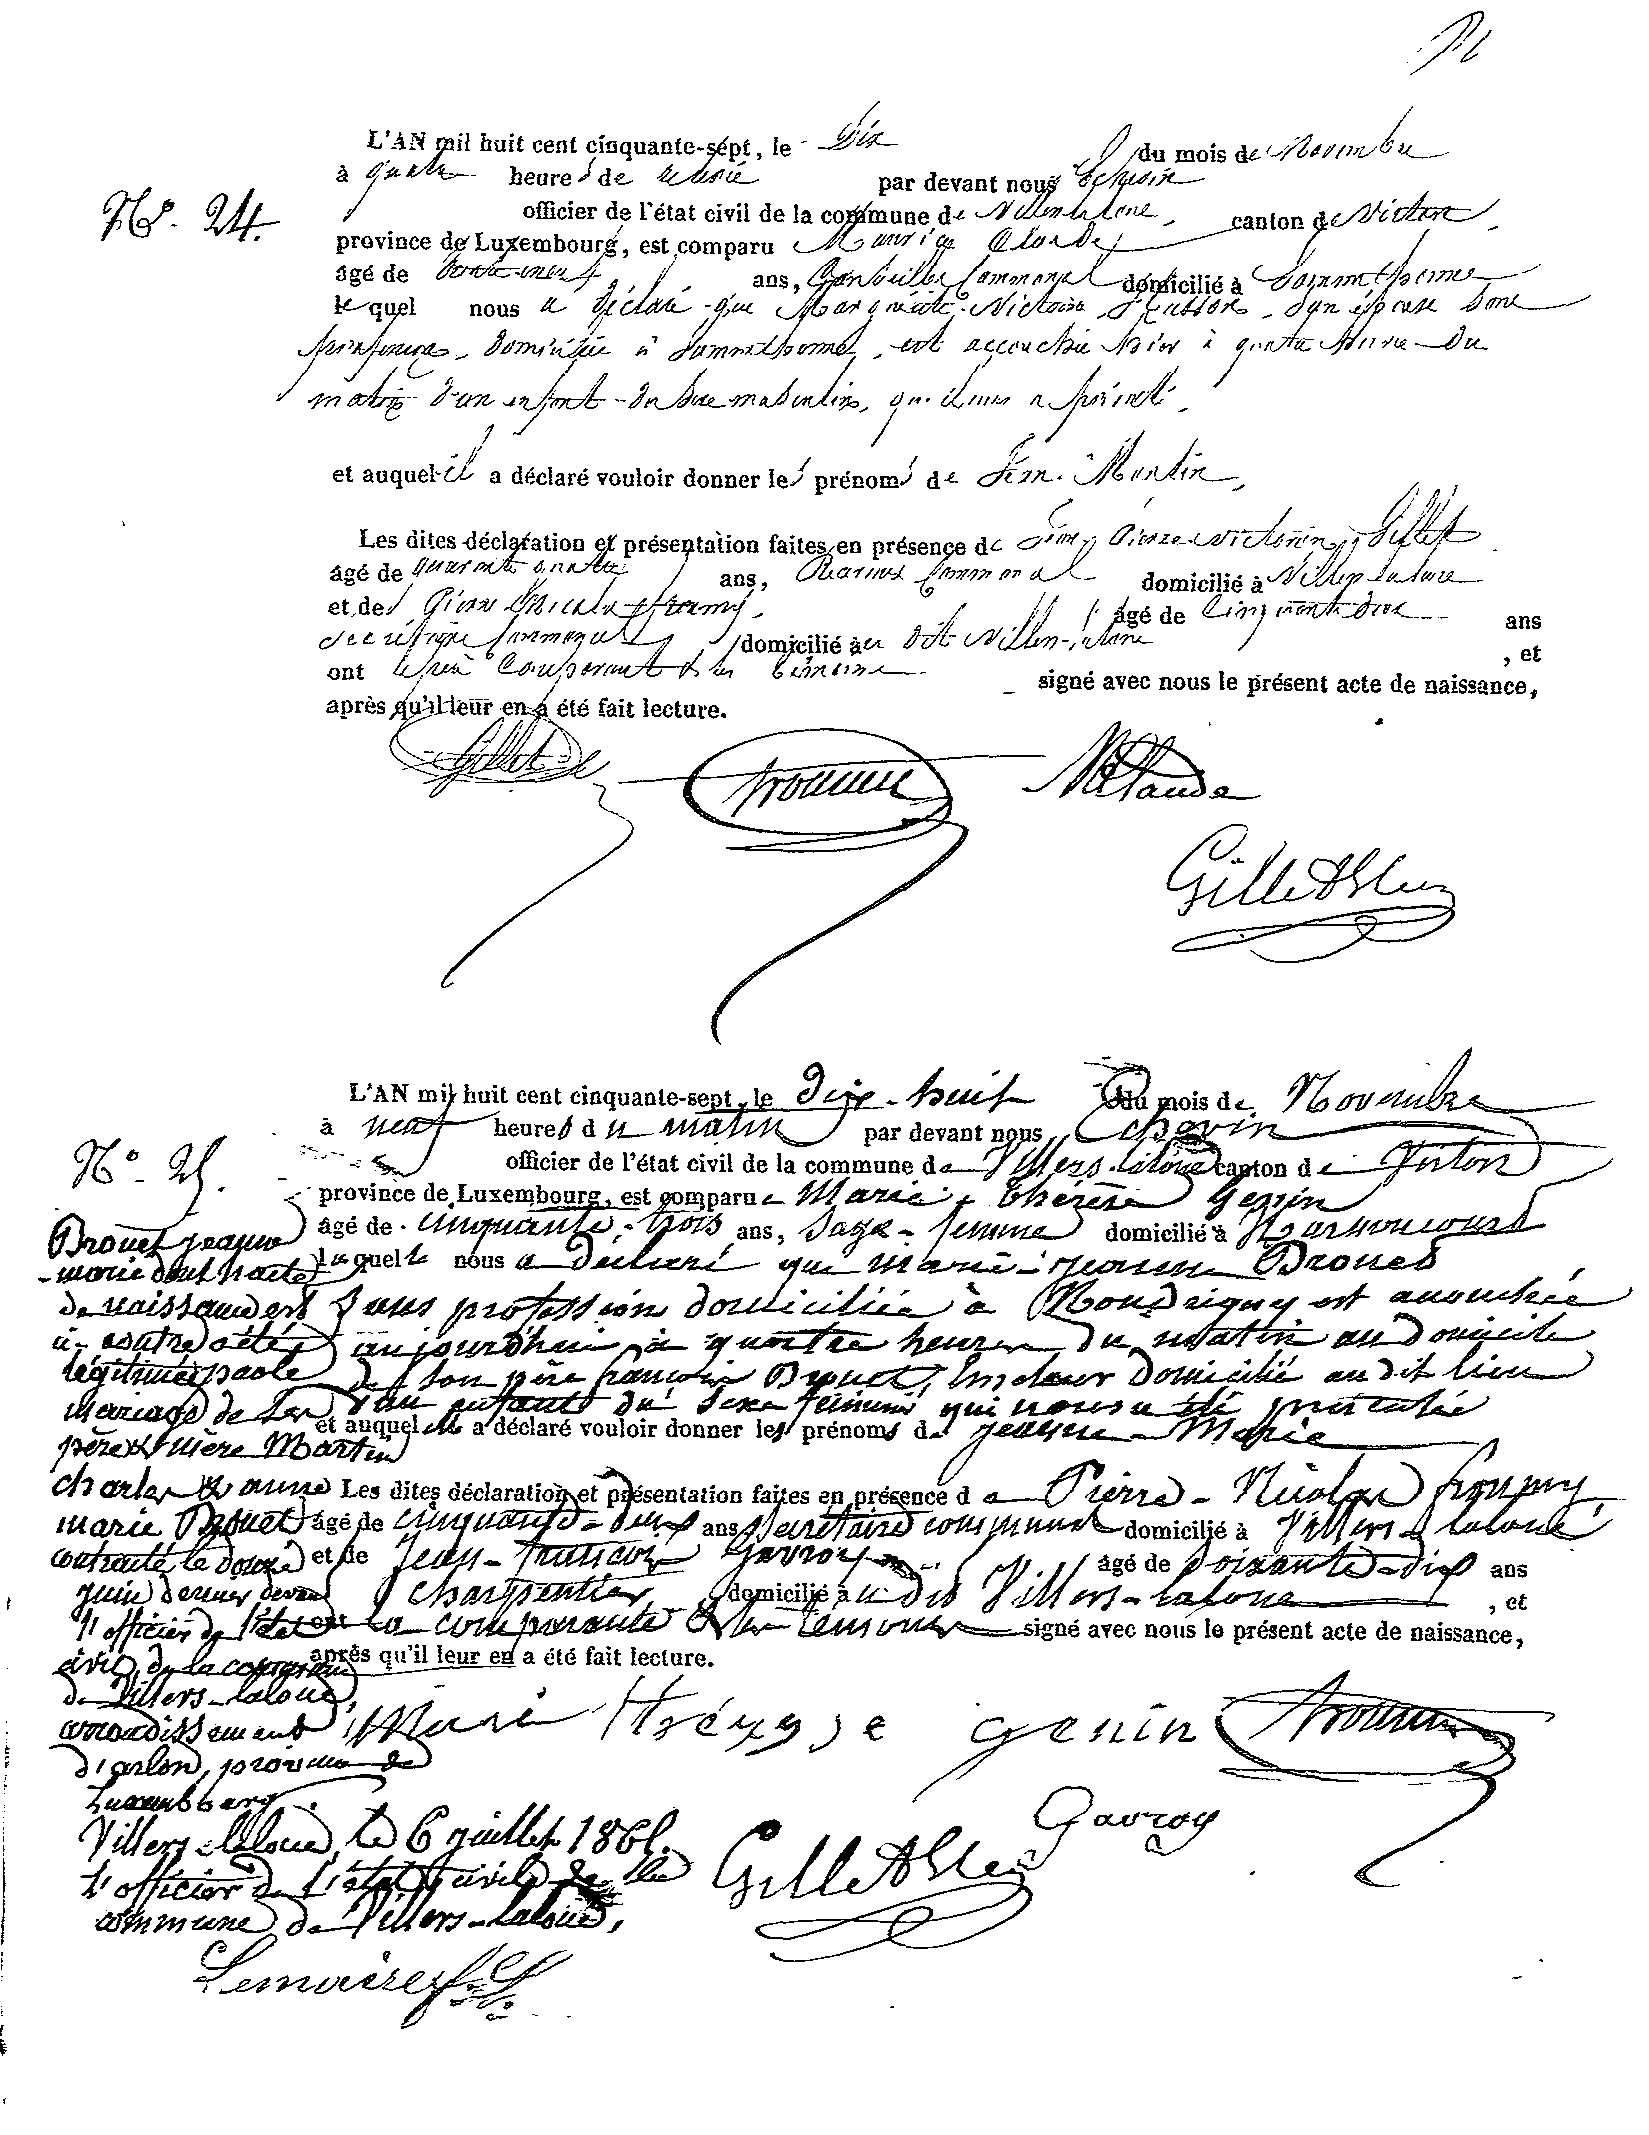 L'AN mil huit cent cinquante-sept, le Dix du mois de Novembre
à quatre heures de relevée par devant nous Echevin
N°. 24.
officier de l'état civil de la commune de Villers-la-loue, canton de Virton,
province de Luxembourg, est comparu Claude
âgé de trente neuf ans, Conseiller Communal domicilié à Sommethonne
lequel nous a déclaré que Marguerite Victoire Husson, son épouse sans
profession, domiciliée à Sommethonne, est accouchée hier à quatre heures du
matin d'un enfant du sexe masculin, qu'il nous a présenté,
et auquel il a déclaré vouloir donner les prénoms de Jean Martin,
Les dites déclaration et présentation faites en présence de Jean Pierre Victorin Gillet
âgé de quarante quatre ans, Receveur Communal domicilié à Villers-la-loue
et de Pierre Nicolas
âgé de Cinquante deux ans
Secrétaire Communal domicilié au dit Villers-la-loue, et
ont le père Comparant & les témoins signé avec nous le présent acte de naissance,
après qu'il leur en a été fait lecture.
Gillet
Claude
L'AN mil huit cent cinquante-sept, le Dix-huit du mois de Novembre
à neuf heures du matin par devant nous Echevin
N°. 25.
officier de l'état civil de la commune de Villers-laloue canton de Virton
province de Luxembourg, est comparue Marie-Therèse Genin
âgé de cinquante-trois ans, Sage-femme domicilié à Harnoncourt
laquelle nous a déclaré que Marie-Jeanne Brouet
sans profession domiciliée à Houdrigny est accouchée
aujourd'hui à quatre heures du matin au domicile
de son père françois Brouet, domicilié au dit lieu
d'un enfant du Sexe féminin qui nous a été présentée
et auquel elle a déclaré vouloir donner les prénoms de Jeanne-Marie
Les dites déclaration et présentation faites en présence de Pierre-Nicolas
âgé de cinquante-deux ans Secrétaire communal domicilié à Villers-laloue
et de Jean-François Gavroy âgé de Soixante-dix ans
charpentier domicilié au dit Villers-laloue, et
ont la comparante & les témoins signé avec nous le présent acte de naissance,
après qu'il leur en a été fait lecture.
Brouet jeanne
-marie dont l'acte
de naissance est
ci-contre a été
légitimée par le
mariage de ses
père & mère Martin
Charles & anne
marie Brouet
contracté le douze
juin dernier devant
l'officier de l'état
civil de la commune
de Villers-laloue,
arrondissement
d'arlon, province de
Luxembourg.
Villers-laloue, le 6 juillet 1861.
L'officier de l'état civil de la
commune de Villers-laloue,
Genin
Gavroy